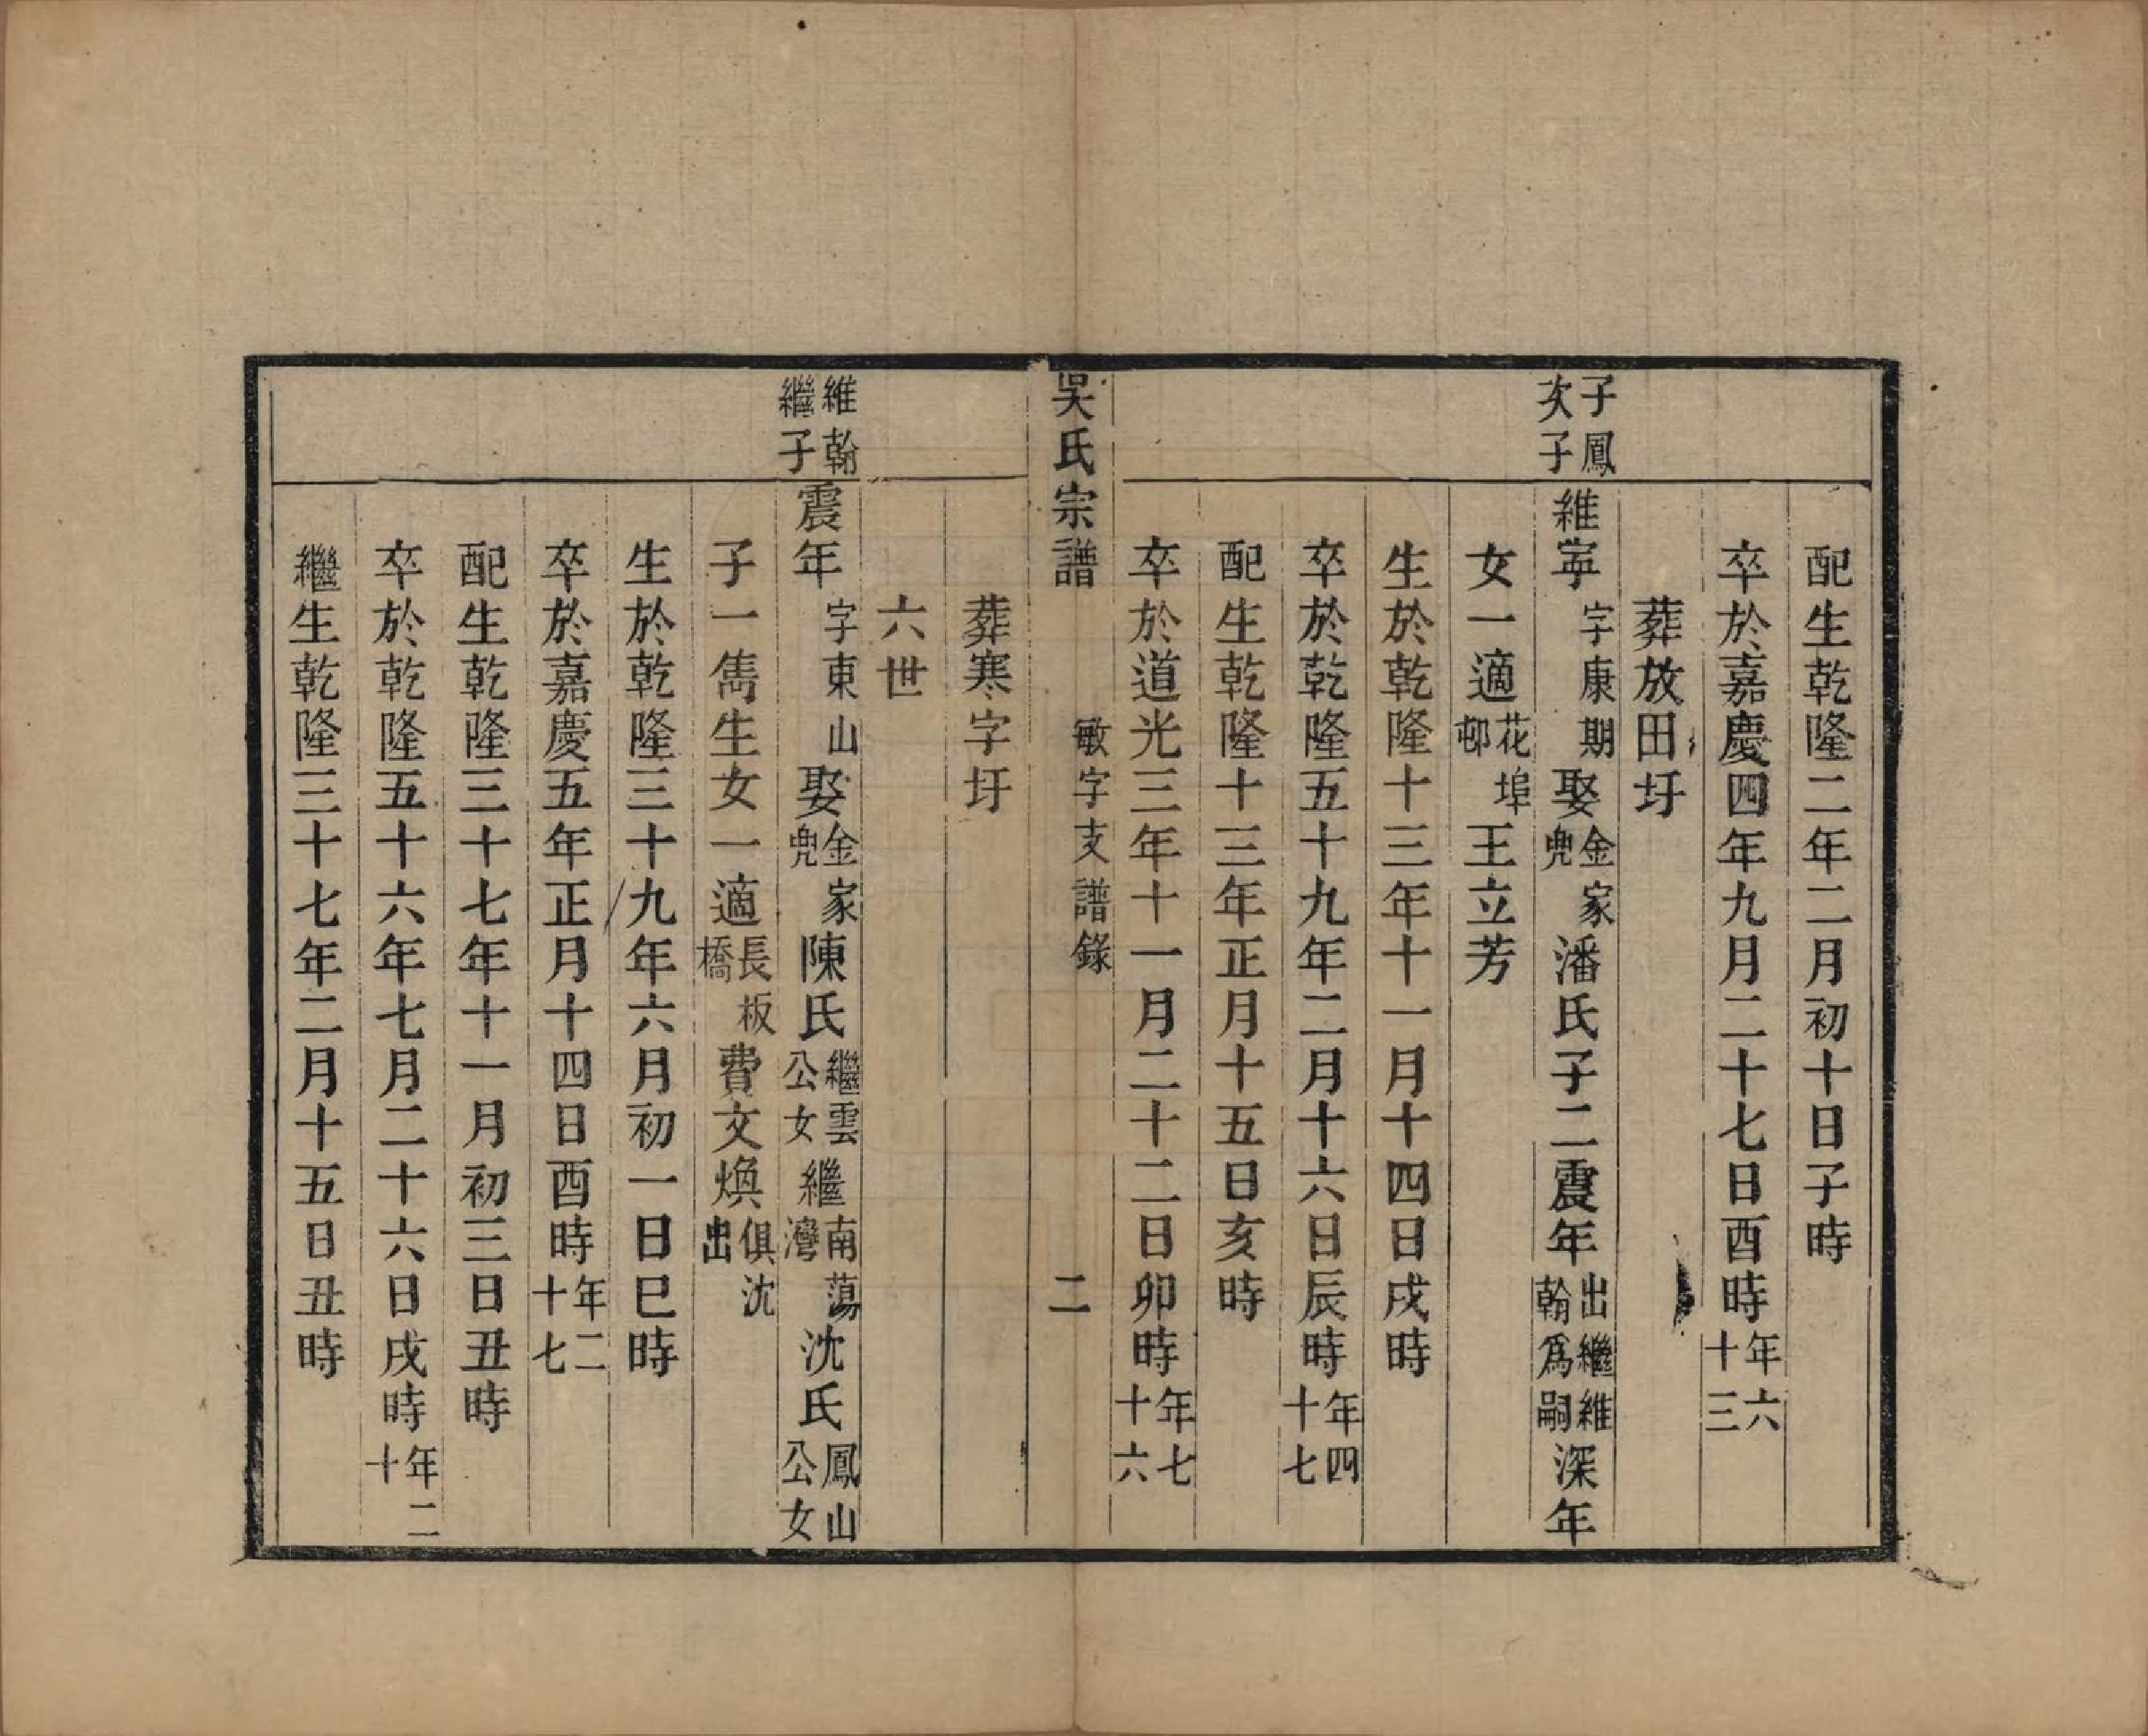 配生乾隆二年二月初十日子時
卒於嘉慶四年九月二十七日酉時年六十三
葬放田圩
子鳳次子
維寧字康期娶金家兜潘氏子二震年出繼維翰爲嗣深年
女一適花埠邨王立芳
生於乾隆十三年十一月十四日戌時
卒於乾隆五十九年二月十六日辰時年四十七
配生乾隆十三年正月十五日亥時
卒於道光三年十一月二十二日卯時年七十六
吳氏宗譜 敏字支譜錄 二
葬寒字圩
六世
維翰繼子
震年字東山娶金家兜陳氏繼雲公女繼南蕩灣沈氏鳳山公女
子一雋生女一適長板橋費文煥俱沈出
生於乾隆三十九年六月初一日巳時
卒於嘉慶五年正月十四日酉時年二十七
配生乾隆三十七年十一月初三日丑時
卒於乾隆五十六年七月二十六日戌時年二十
繼生乾隆三十七年二月十五日丑時